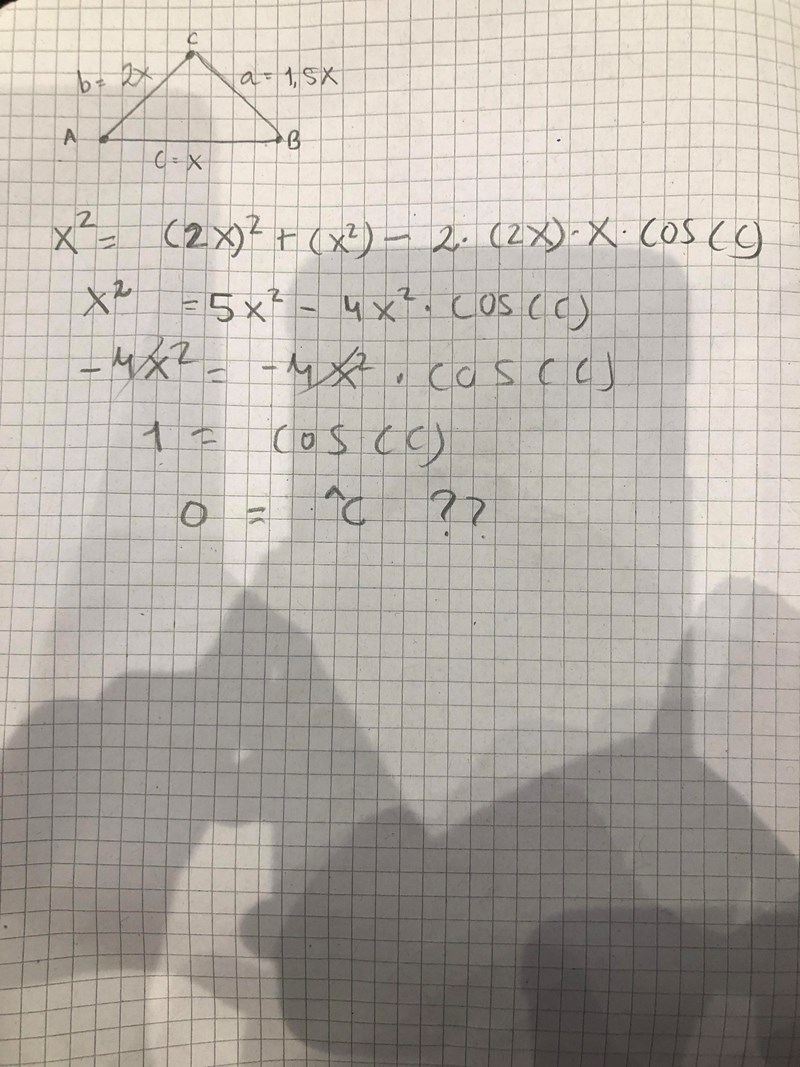 C
b = 2x
a = 1,5x
A
B
c = x
x² = (2x)² + (x²) - 2 · (2x) · x · cos(C)
x² = 5x² - 4x² · cos(C)
-4x² = -4x² · cos(C)
1 = cos(C)
0 = ^C ??